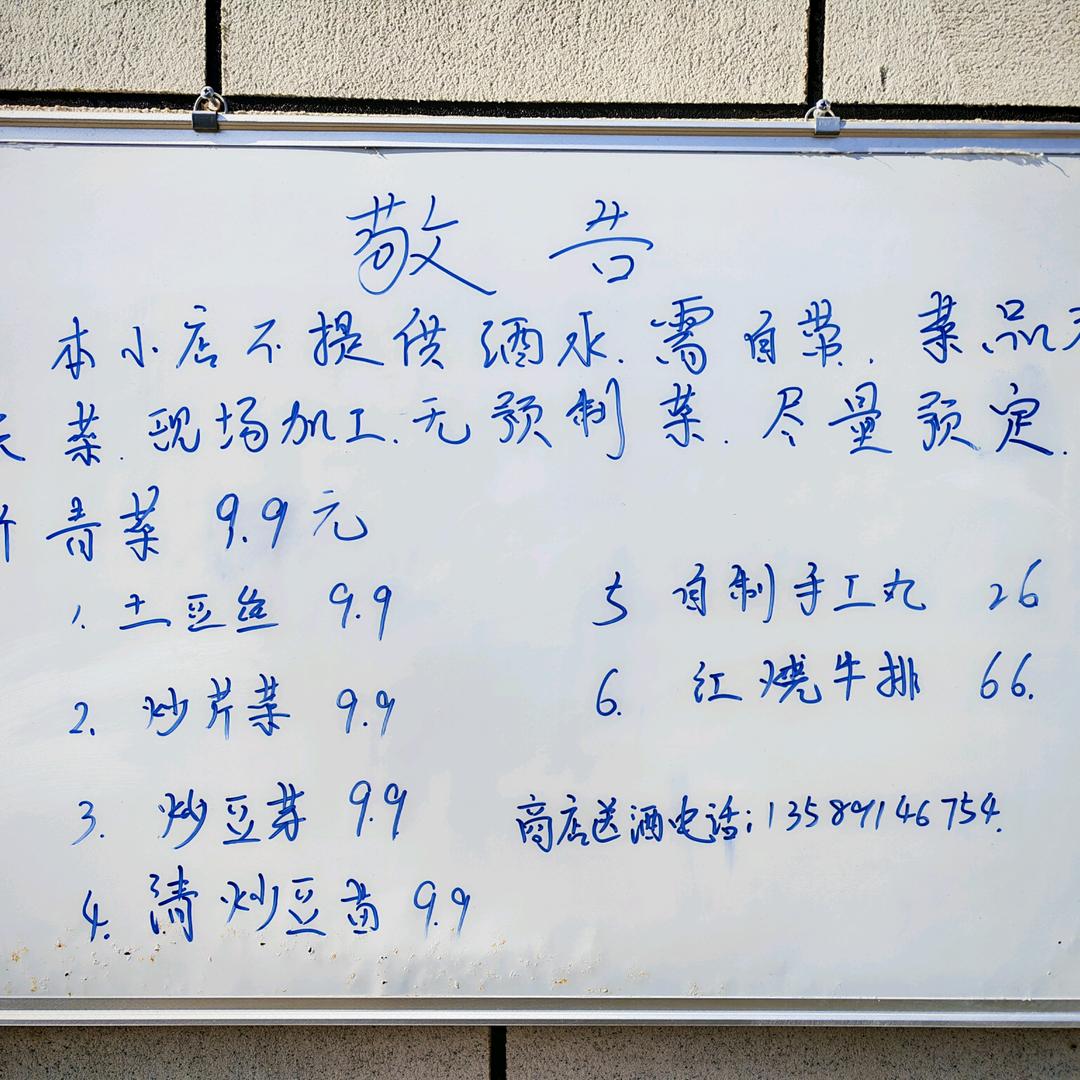 敬告
本小店不提供酒水.需自带.菜品
菜.现场加工.无预制菜.尽量预定.
青菜 9.9元
1. 土豆丝 9.9
2. 炒芹菜 9.9
3. 炒豆芽 9.9
4. 清炒豆苗 9.9
5 自制手工丸 26
6. 红烧牛排 66.
商店送酒电话:13589146754.